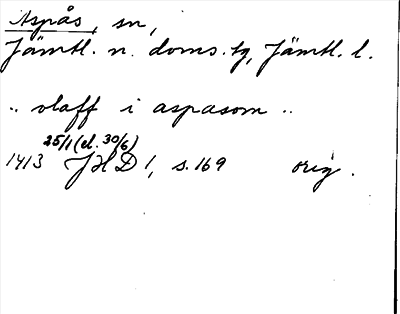 Aspås, sn,
Jämtl. n. doms.tg, Jämtl. l.
.. olaff i aspasom ..
25/1 (el. 30/6)
1413 JHD 1, s. 169 orig.